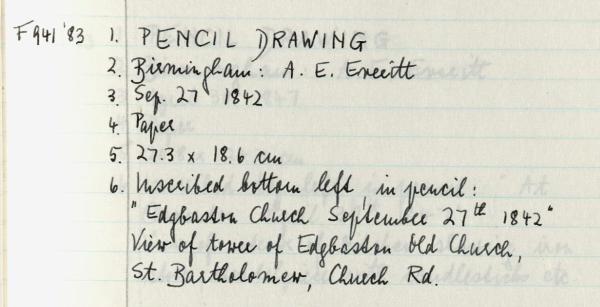 F941'83 1. PENCIL DRAWING
2. Birmingham: A. E. Everitt
3. Sep. 27 1842
4. Paper
5. 27.3 x 18.6 cm
6. Inscribed bottom left, in pencil:
"Edgbaston Church September 27th 1842"
View of tower of Edgbaston Old Church,
St. Bartholomew, Church Rd.